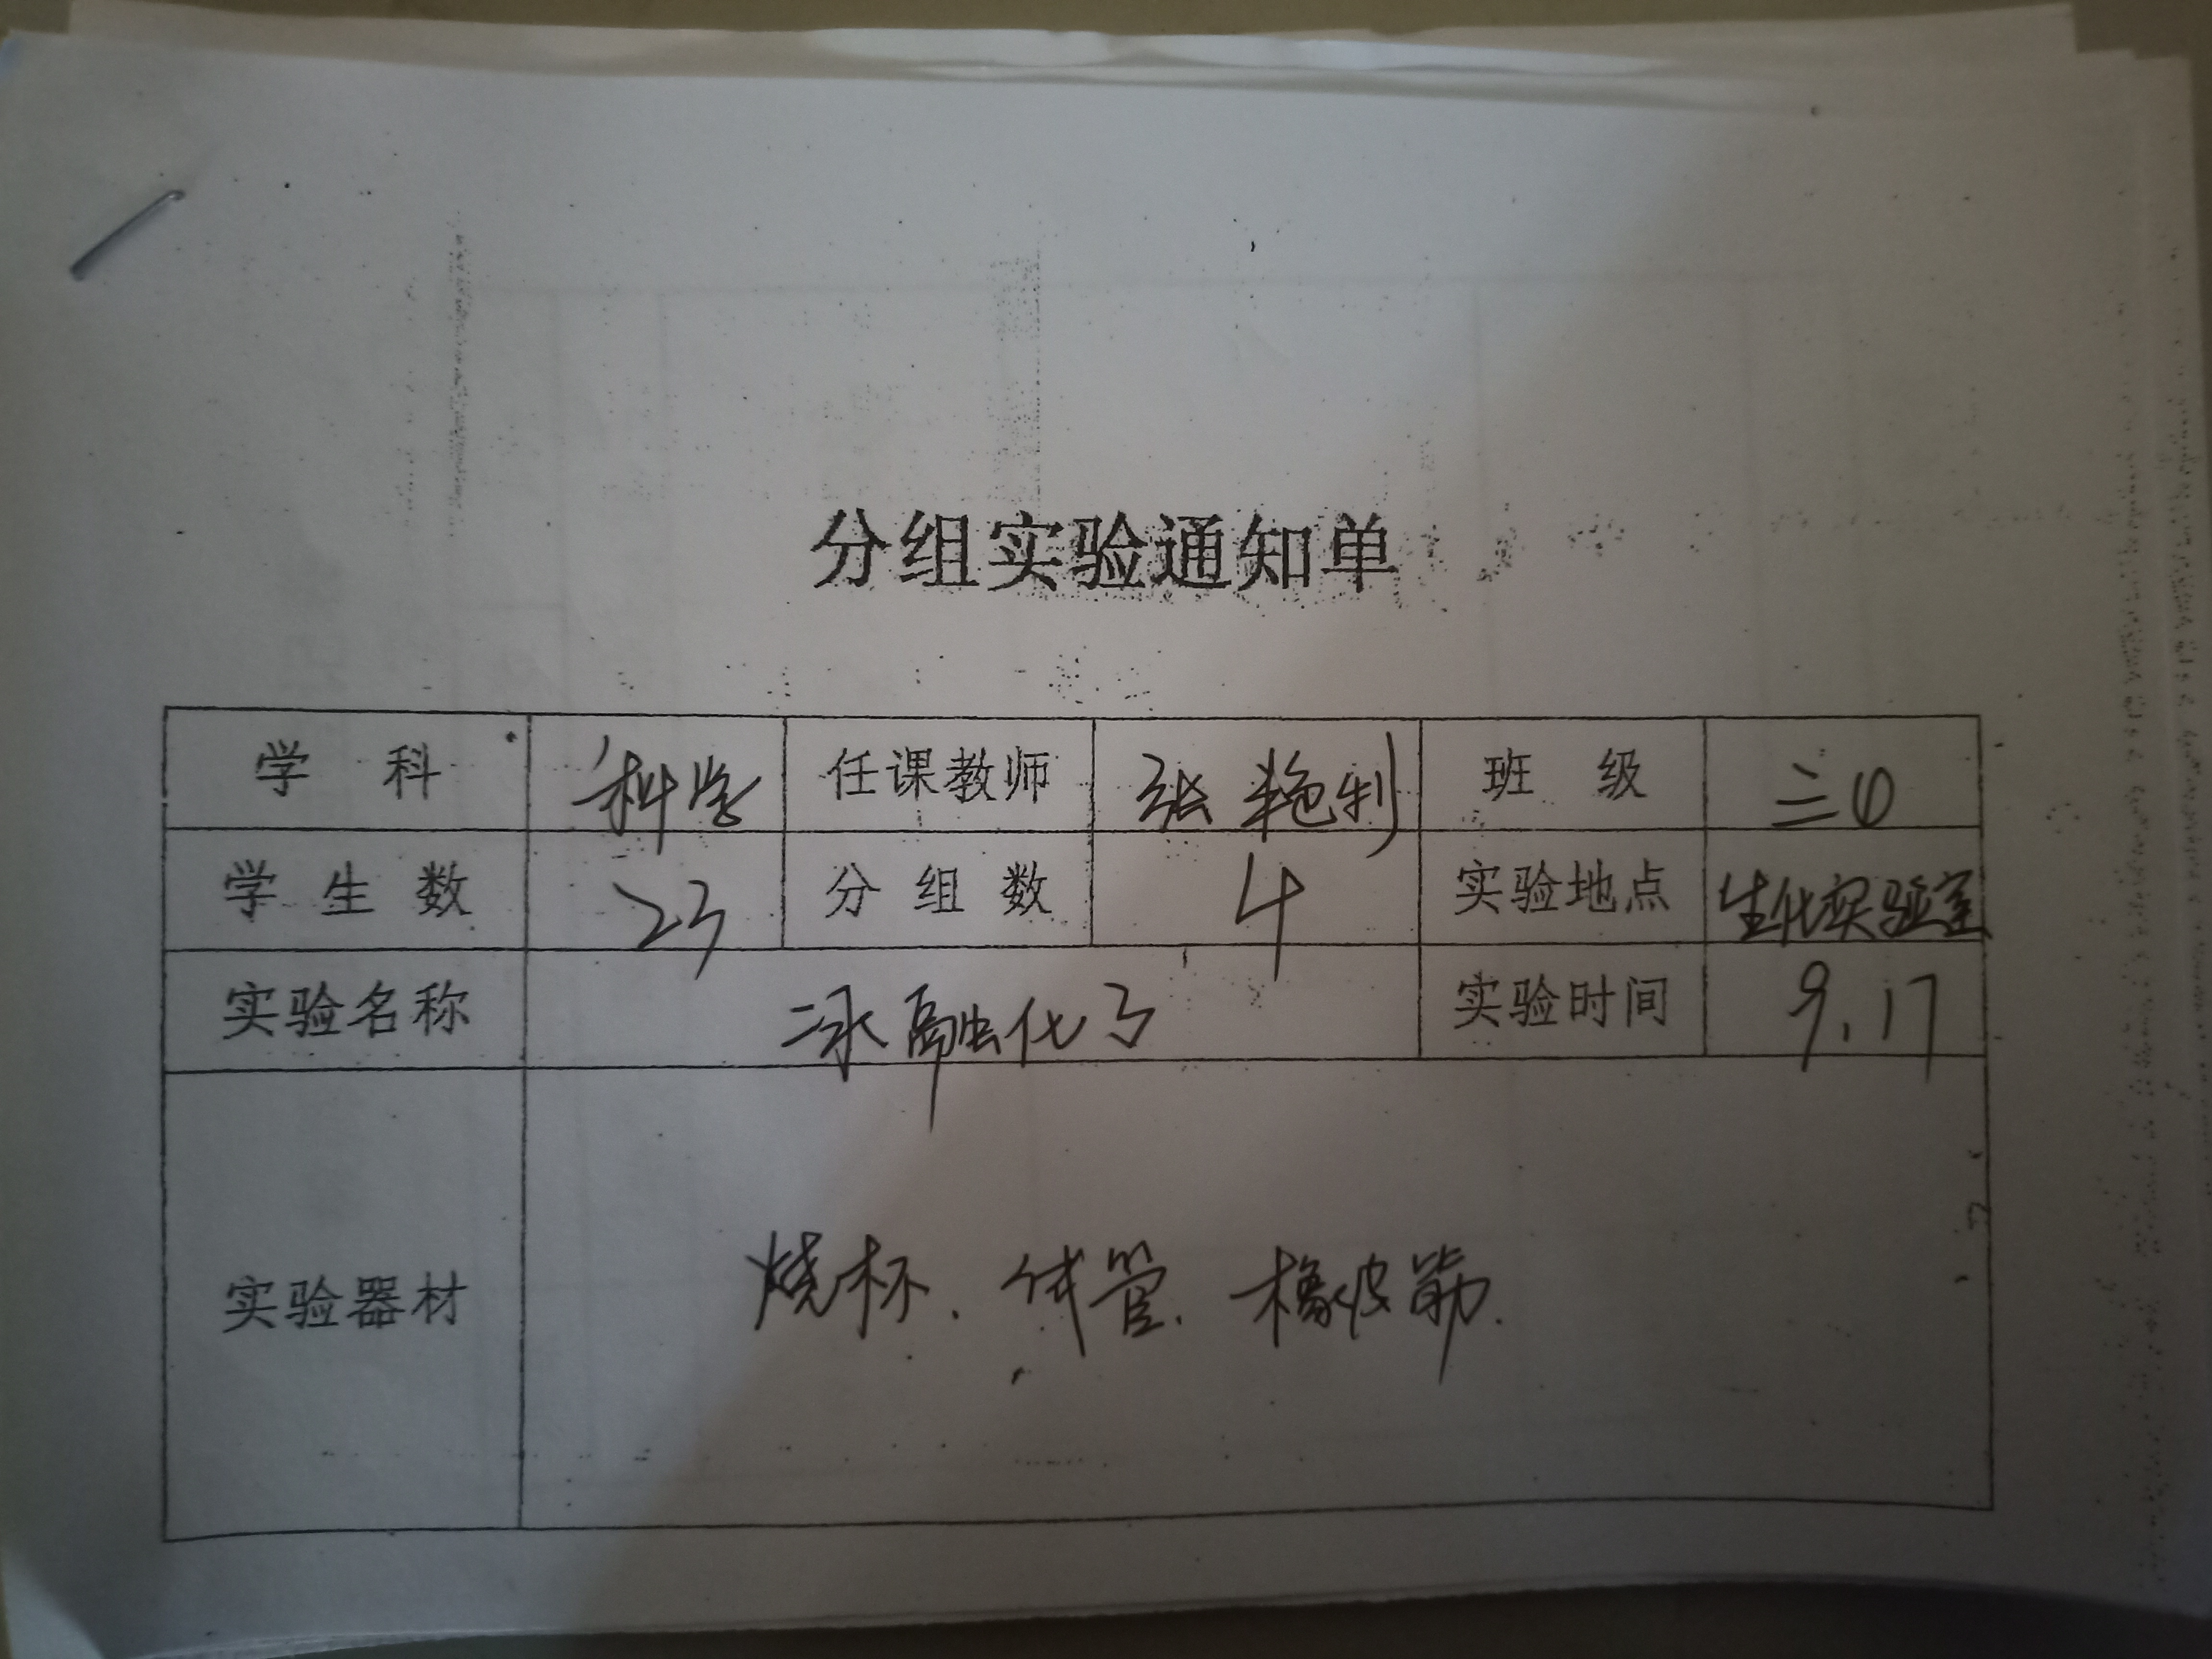 分组实验通知单
学 科 科学 任课教师 张艳利 班 级 三(1)
学 生 数 23 分 组 数 4 实验地点 生化实验室
实验名称 冰融化了 实验时间 9.17
实验器材 烧杯、试管、橡皮筋.